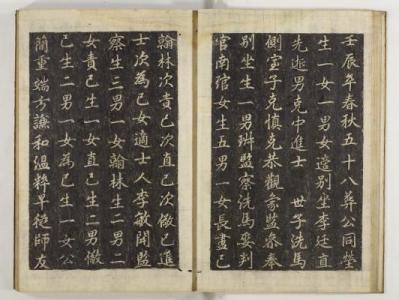 壬辰卒春秋五十八葬公同塋
生一女一男女適別坐李廷直
先逝男克中進士　世子洗馬
側室子克慎克恭觀象監參奉
別坐生一男監察洗馬娶判
官南琯女生五男一女長藎已
翰林次賁已次直已次儆已進
士次為已女適士人李敏開監
察生三男一女翰林生二男二
女賁已生一女直已生二男儆
已生二男一女為已生一女公
簡重端方謙和溫粹早從師友